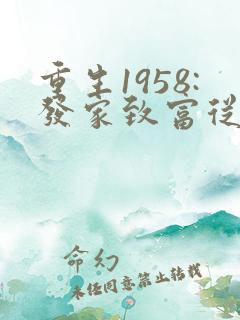 重生1958:
發家致富從
命幻
未经同意禁止转载